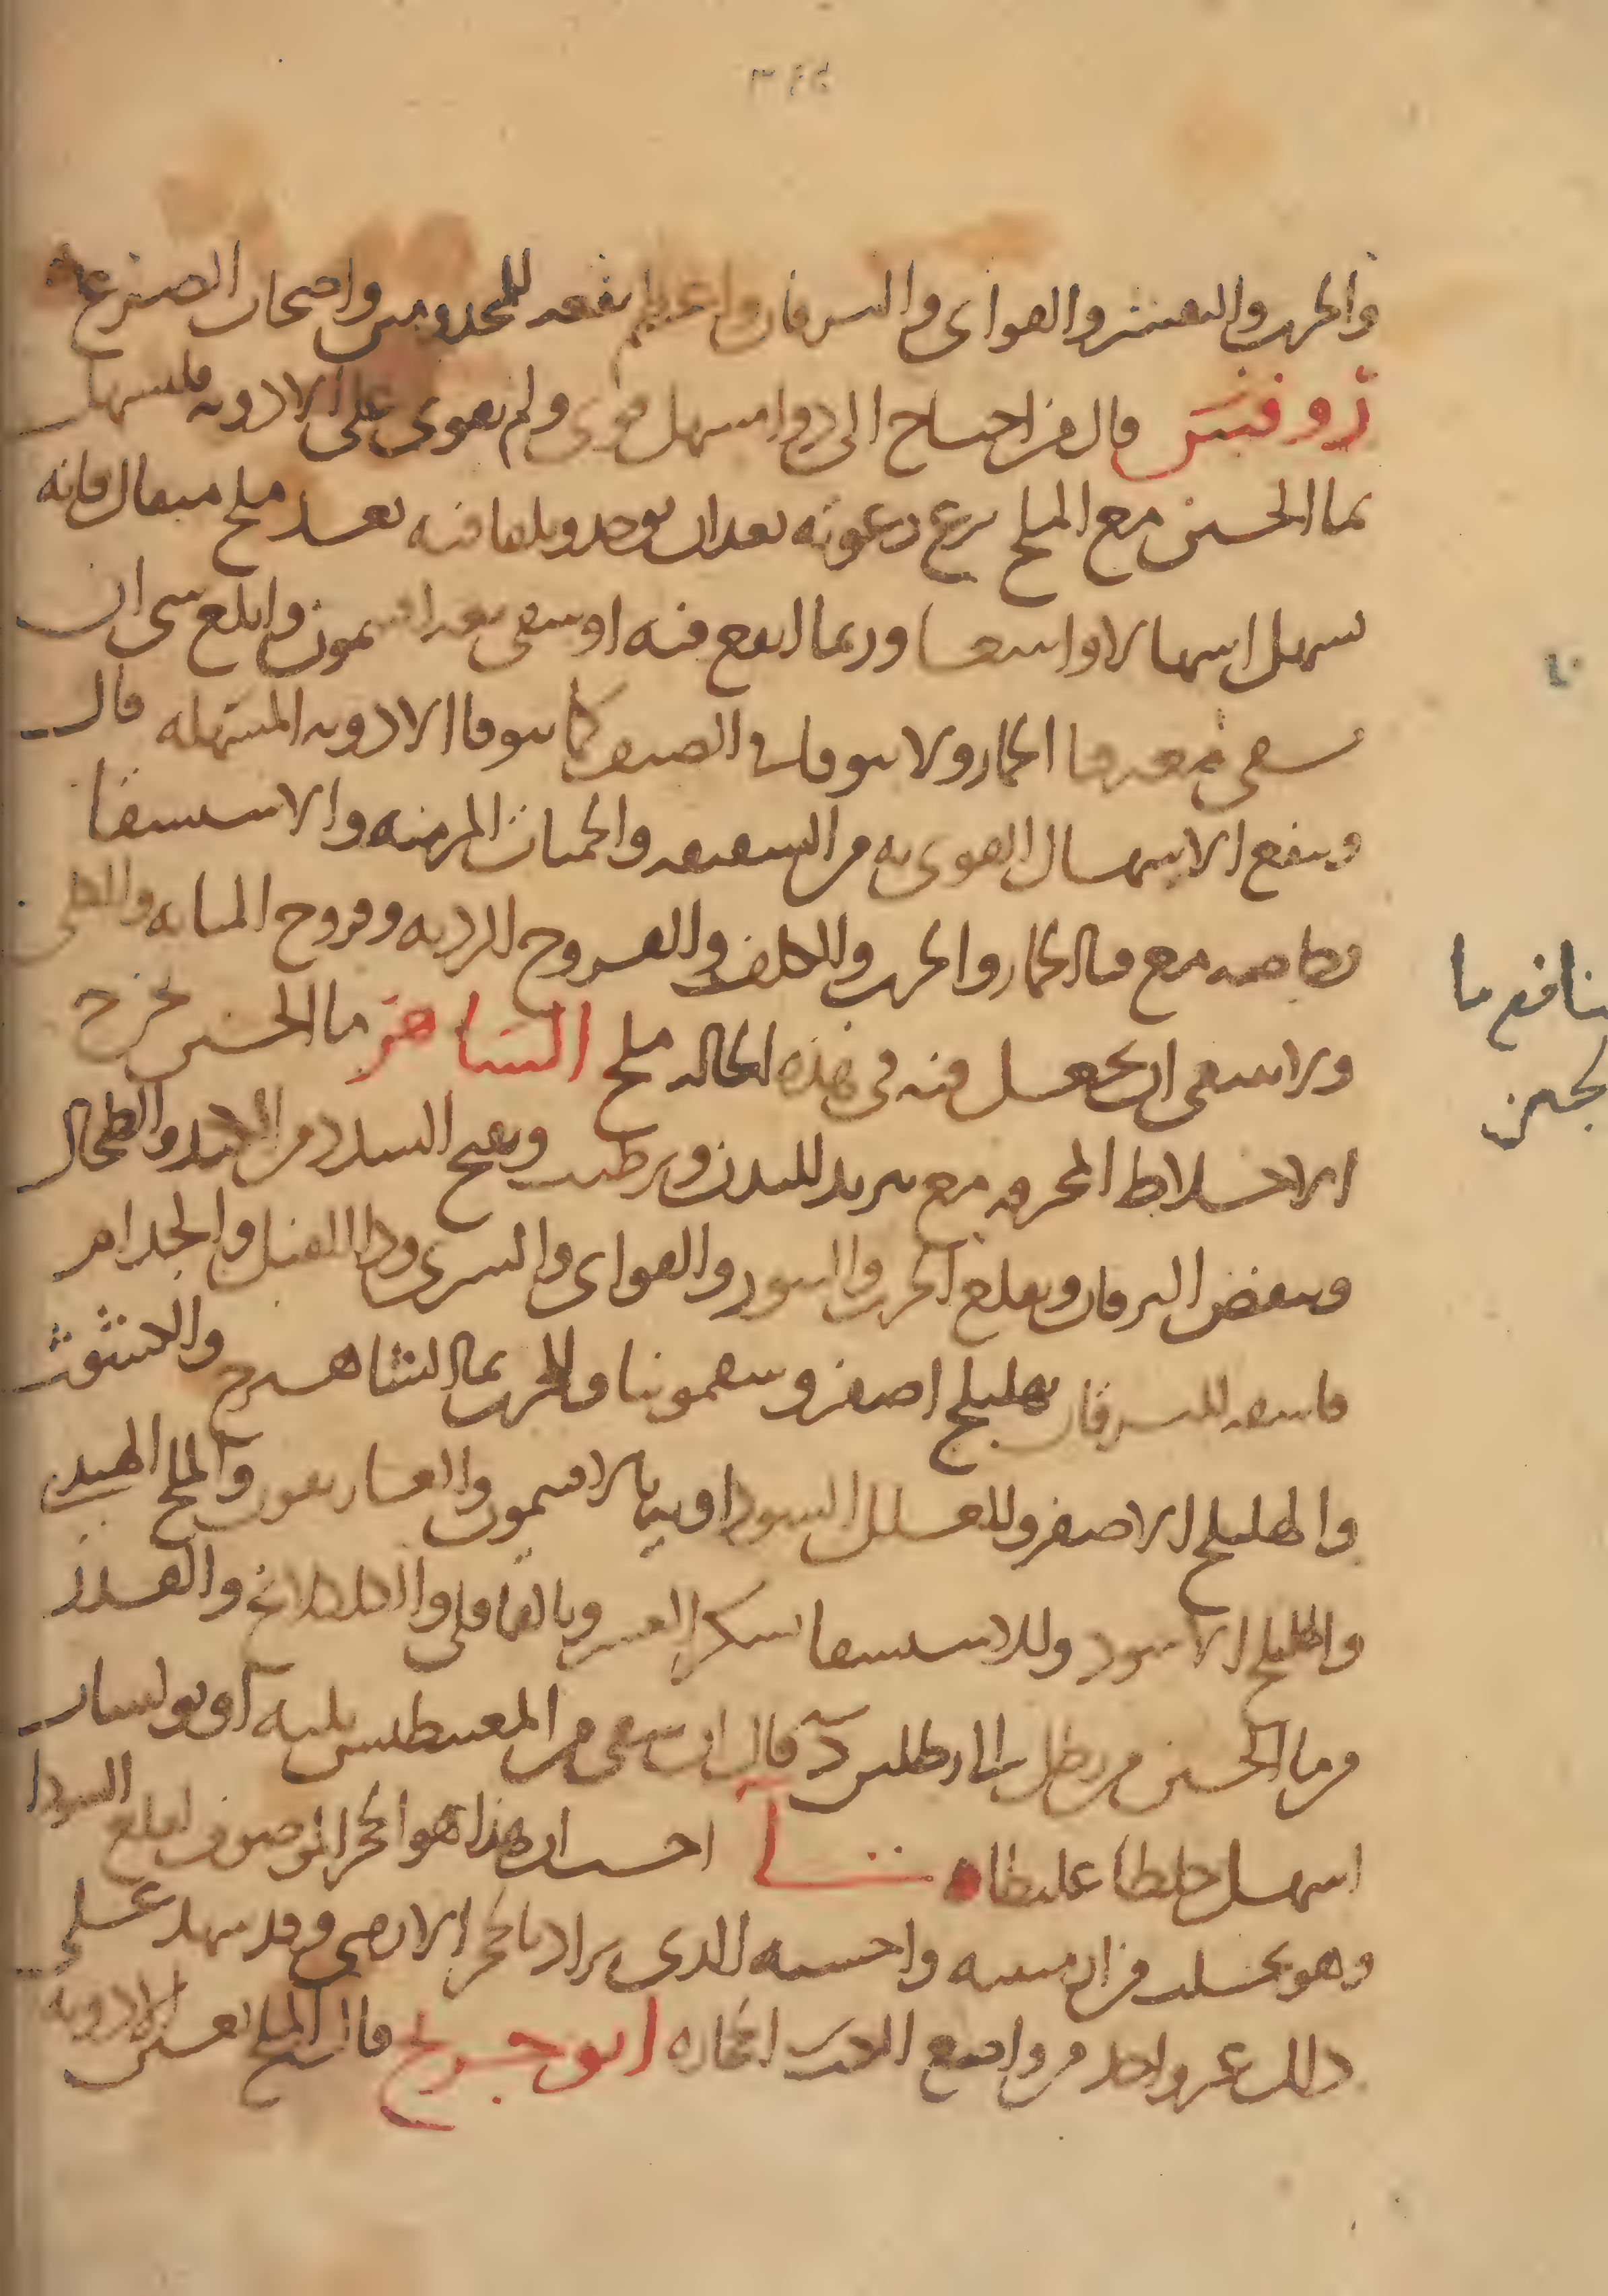 ٣٤٤
والجرب والتقشر والقوابي واليرقان واعظم نفعه للمجذومين واصحاب الصرع
روفس قال من احتاج الى دوا مسهل قوي ولم يقوى على الادويه فليسهل
بما الجبن مع الملح برغوته بعد ان يوخذ ويلقا فيه بعد ملح مثقال فانه
يسهل اسهالا واسعا وربما انقع فيه او سقي بعد افتيمون وابلغ شي ان
يسقى بعدها الحار ولا يتوقا في الصيف كما يتوقا الادويه المسهله قال
وينفع الاسهال القوي به من الشقيقه والحميات المزمنه والاستسقا
وخاصه مع قثا الحمار والجرب والكلف والقروح الرديه وقروح المثانه والكلى
ولا ينبغي ان يجعل فيه في هذه الحاله ملح الساهر ما الجبن يخرج
الاخلاط المحرقه مع تبريد للبدن وترطيب ويفتح السدد من الكبد والطحال
وينفض اليرقان ويقلع الجرب والبثور والقوابي والشرى ودا الفيل والجذام
فاسقه لليرقان بهليلج اصفر وسقمونيا وللجرب بما الشاهترج والكشوث
والهليلج الاصفر وللعلل السوداويه بالافتيمون والغاريقون والملح الهندي
والهليلج الاسود وللاستسقا بسكر العشر وبالقاقلي والكلكلانج والقدر
من ما الجبن من رطل الى رطلين د قال ان سقي من المغنطيس ثلثه اوبولسات
اسهل خلطا غليظا لي احسب ان هذا هو الحجر الموصوف لقلع السودا
وهو يجلب من ارمينيه واحسبه الذي يراد بالحجر الارمني وقد شهد على
ذلك غير واحد من واضع الكتب الحجاره ابن جريج قال الملح يعين الادويه
منافع ما
الجبن